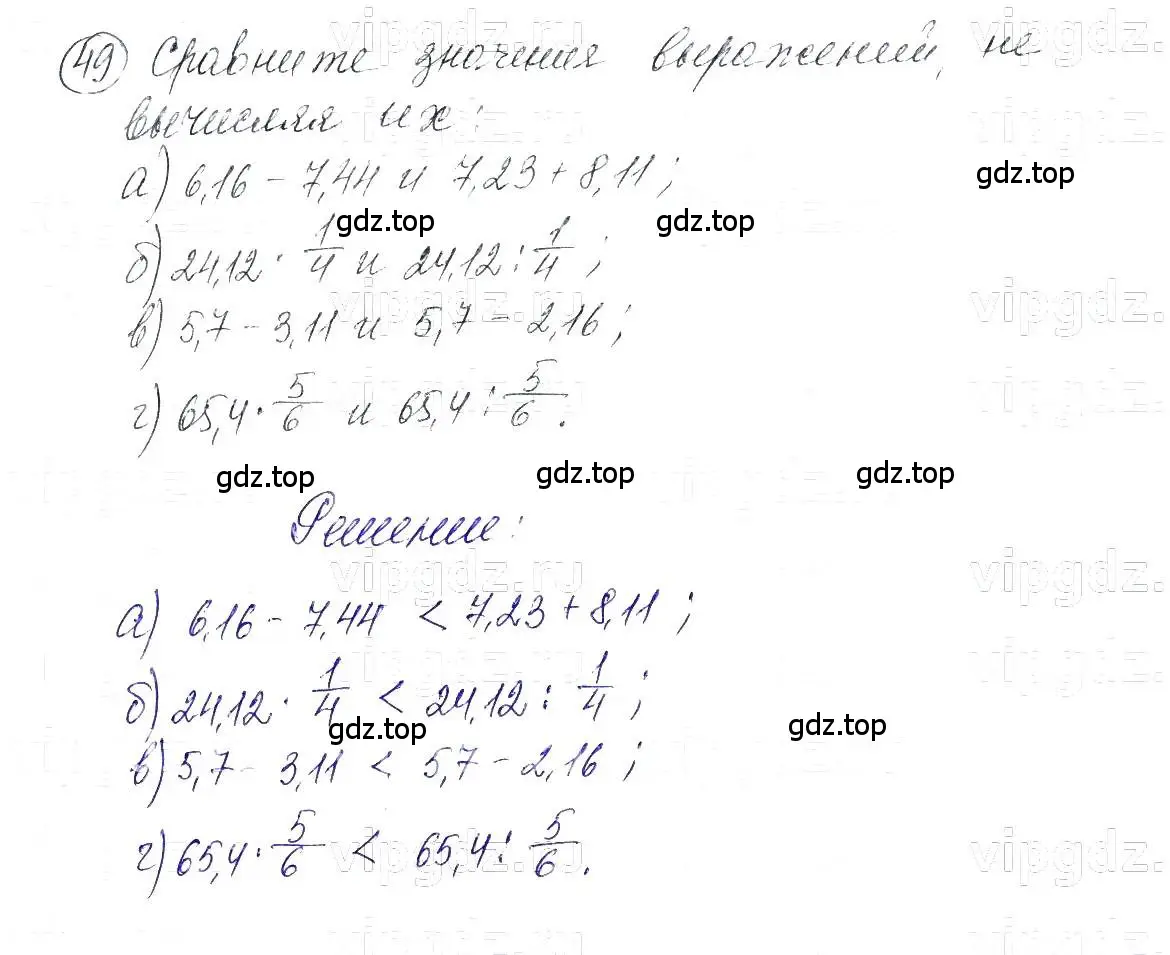 49 Сравните значения выражений, не
вычисляя их:
а) 6,16 - 7,44 и 7,23 + 8,11;
gdz.top
gdz.top gdz.top
б) 24,12 · 1/4 и 24,12 : 1/4;
vipgdz.ru vipgdz.
в) 5,7 - 3,11 и 5,7 - 2,16;
г) 65,4 · 5/6 и 65,4 : 5/6.
gdz.top gdz.top gdz.top
Решение:
vipgdz.ru vipgdz.
а) 6,16 - 7,44 < 7,23 + 8,11;
б) 24,12 · 1/4 < 24,12 : 1/4;
gdz.top gdz.top
в) 5,7 - 3,11 < 5,7 - 2,16;
г) 65,4 · 5/6 < 65,4 : 5/6.
vipgdz.ru vipgdz.